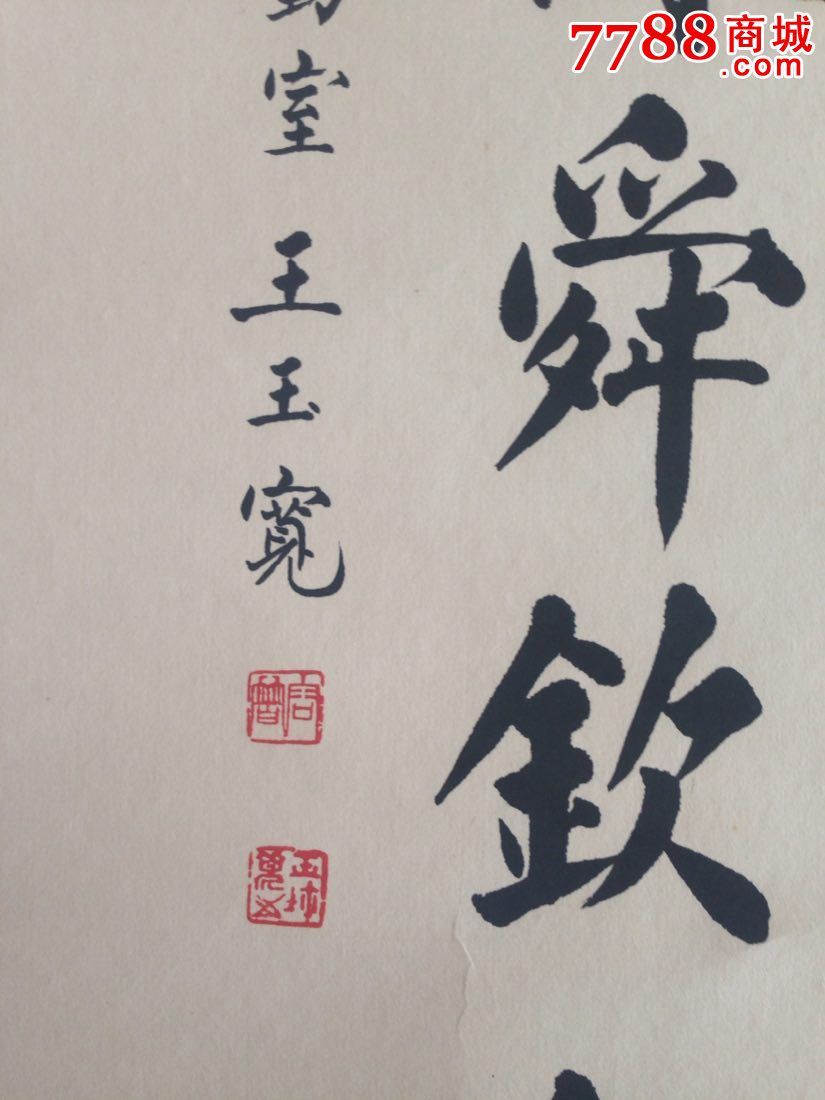 7788商城
.com
舜欽
室王玉寬